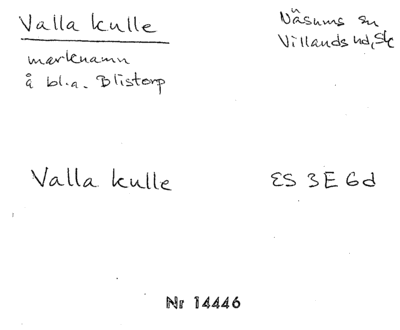 Valla kulle
Näsums sn
Villands hd, Sk
marknamn
å bl.a. Blistorp
Valla kulle
ES 3E 6d
Nr 14446